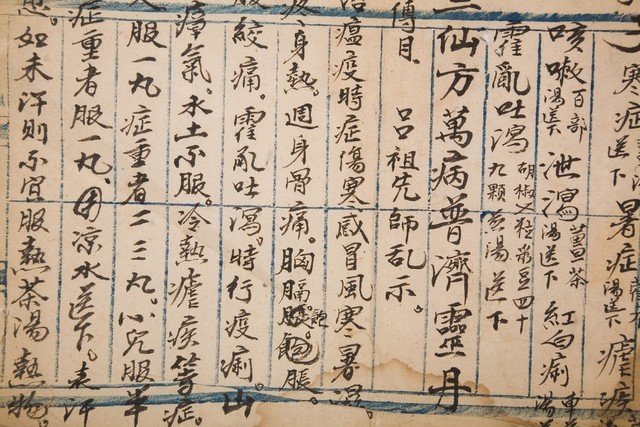 寒症湯送下 暑症湯送下 瘧疾
咳嗽百部湯送下 泄瀉薑茶湯送下 紅白痢車前湯
霍亂吐瀉胡椒七粒菉豆四十九顆煎湯送下
三仙方萬病普濟靈丹
傳月 呂祖先師乩示。
治瘟疫時症傷寒感冒風寒暑濕。
身熱。週身骨痛。胸膈飽脹。
服絞痛。霍亂吐瀉。時行疫痢。山
瘴氣。水土不服。冷熱瘧疾等症。
服一丸症重者二三丸。小兒服半
症重者服一丸。用凉水送下。表汗
如未汗則不宜服熱茶湯熱物。